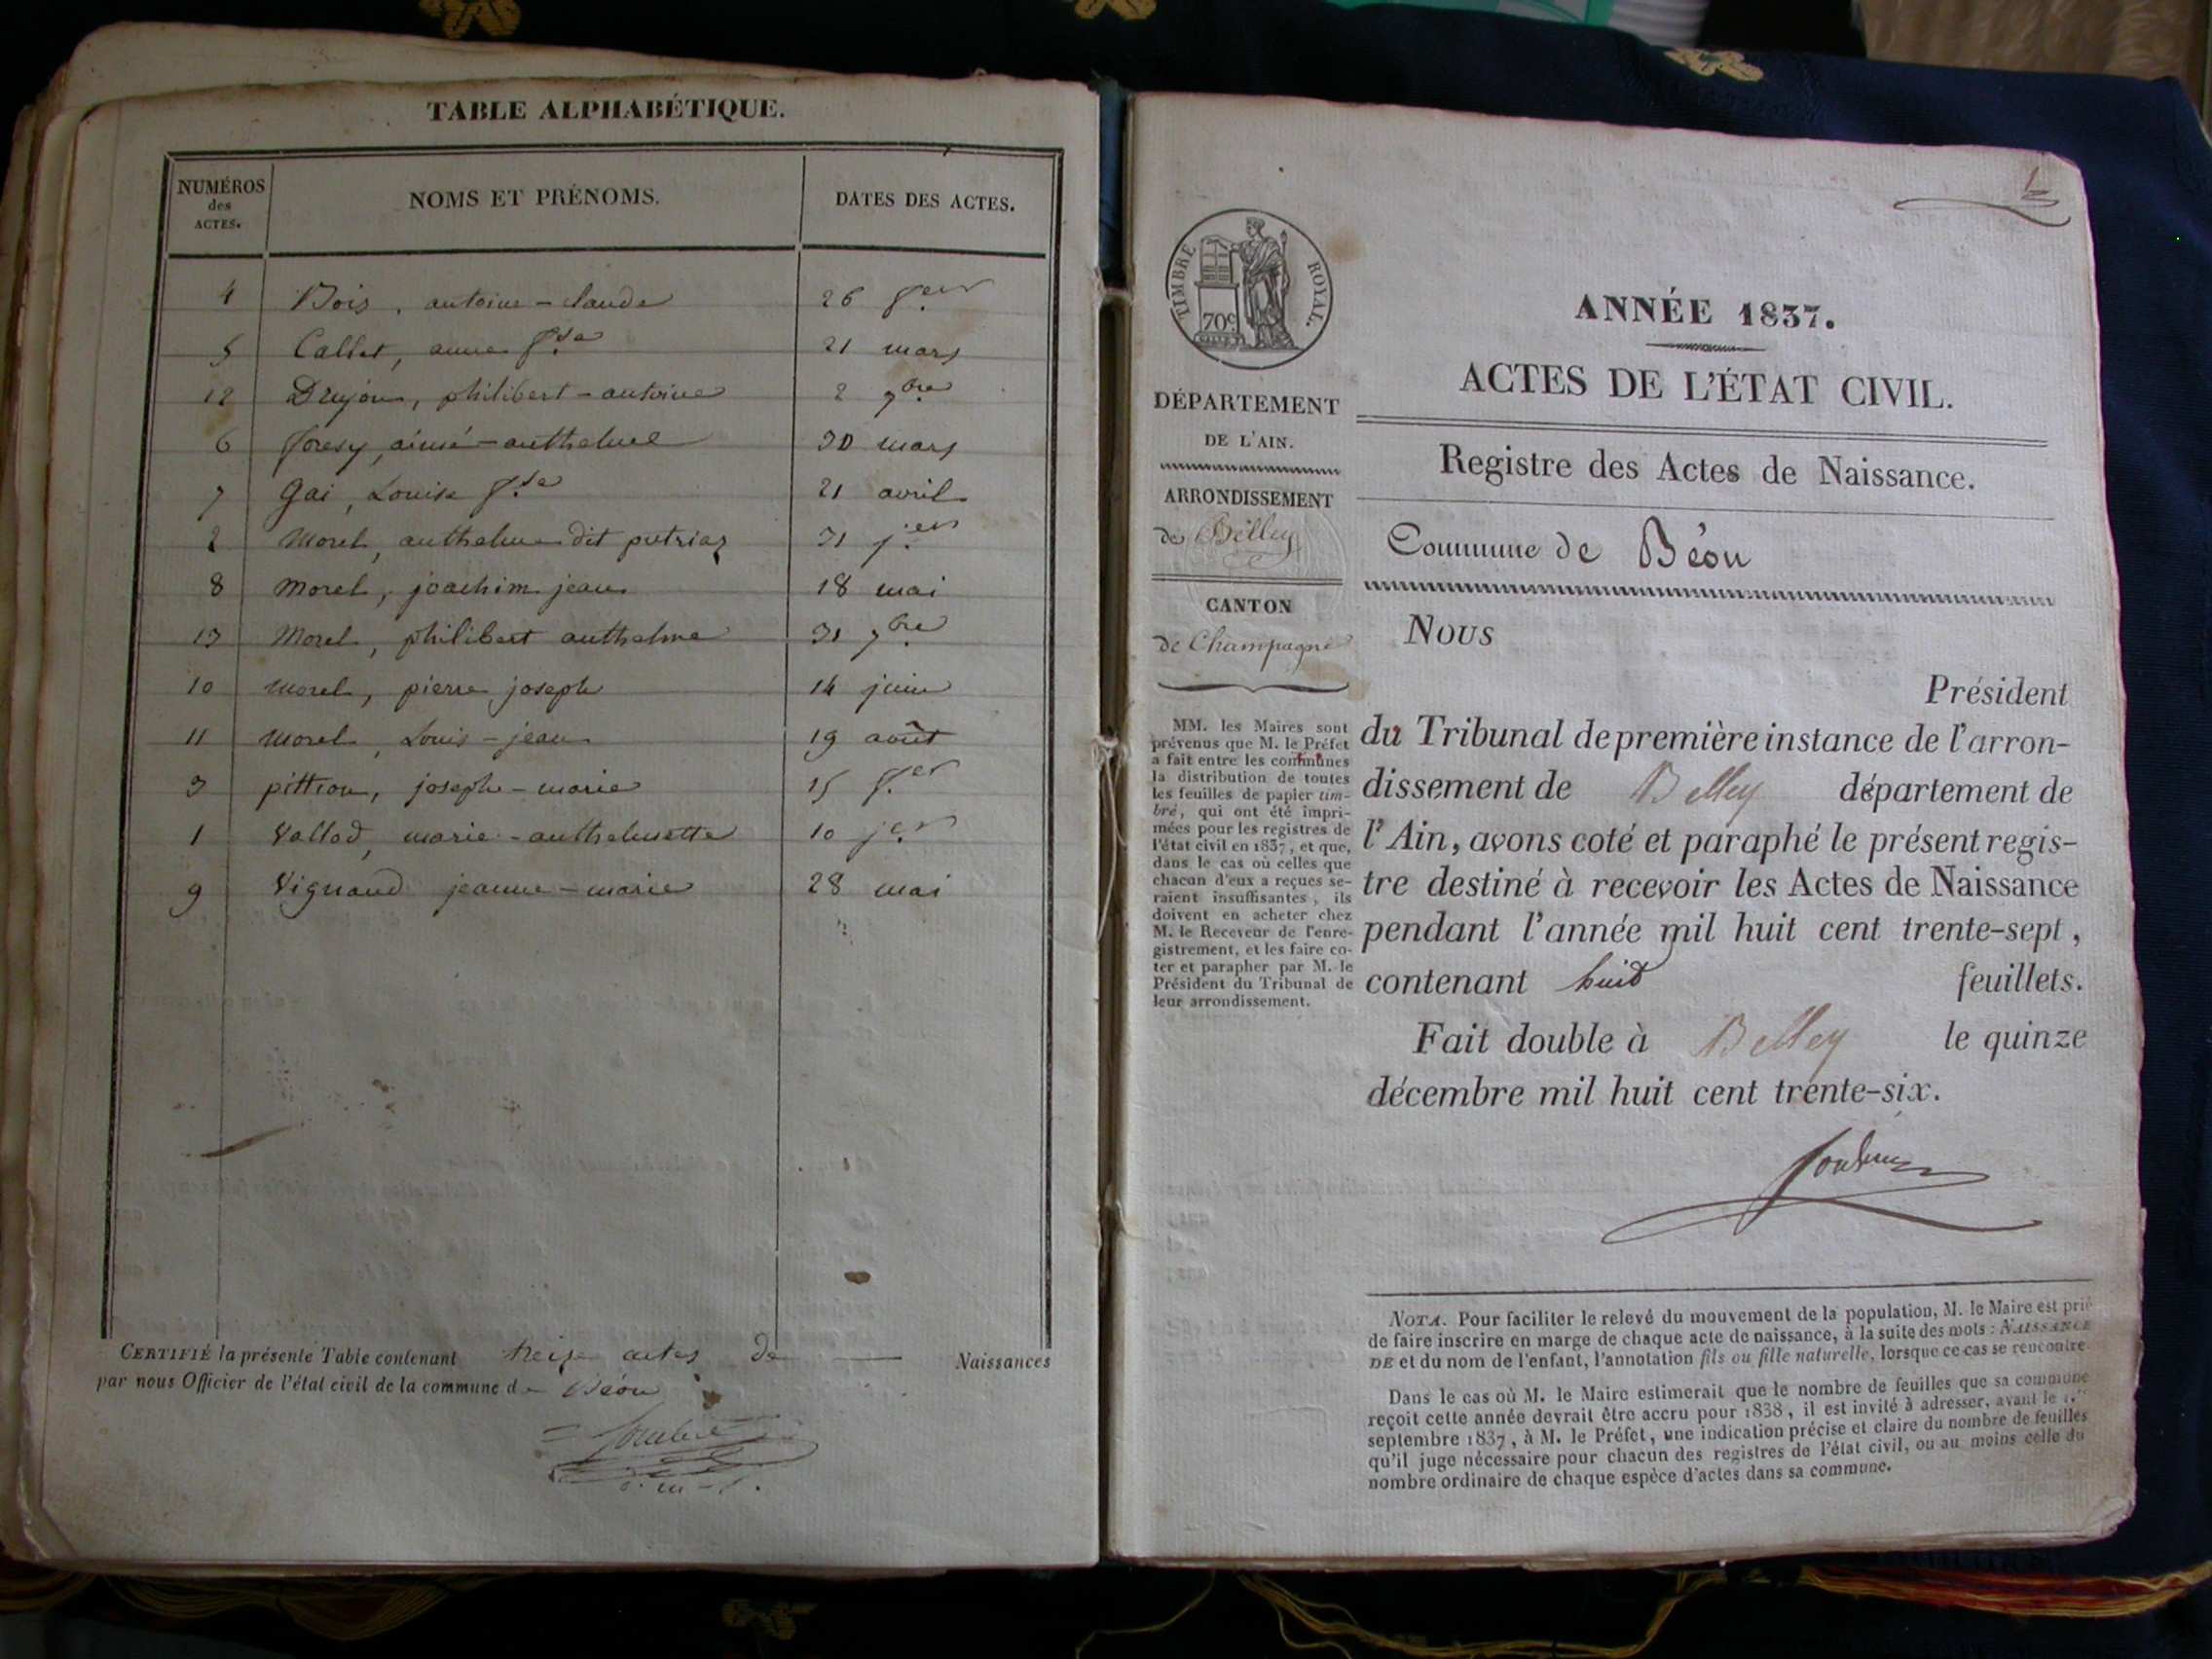 TABLE ALPHABÉTIQUE.
NUMÉROS
des
ACTES.
NOMS ET PRÉNOMS.
DATES DES ACTES.
4 Bois, antoine-claude 26 f.er
5 Callet, anne f.se 21 mars
12 Drujon, philibert-antoine 2 7.bre
6 foresy, aimé-anthelme 30 mars
7 Gai, Louise f.se 21 avril
2 Morel, anthelme dit putriaz 31 j.er
8 Morel, joachim jean 18 mai
13 Morel, philibert anthelme 31 7.bre
10 Morel, pierre joseph 14 juin
11 Morel, Louis-jean 19 août
3 pittion, joseph-marie 15 f.er
1 Vallod, marie-anthelmette 10 j.er
9 Vignaud jeanne-marie 28 mai
CERTIFIÉ la présente Table contenant treize actes de Naissances
par nous Officier de l'état civil de la commune de Béon
1
TIMBRE ROYAL.
70c
ANNÉE 1837.
ACTES DE L'ÉTAT CIVIL.
Registre des Actes de Naissance.
Commune de Béon
DÉPARTEMENT
DE L'AIN.
ARRONDISSEMENT
de Belley
CANTON
de Champagne
MM. les Maires sont
prévenus que M. le Préfet
a fait entre les communes
la distribution de toutes
les feuilles de papier tim-
bré, qui ont été impri-
mées pour les registres de
l'état civil en 1837, et que,
dans le cas où celles que
chacun d'eux a reçues se-
raient insuffisantes, ils
doivent en acheter chez
M. le Receveur de l'enre-
gistrement, et les faire co-
ter et parapher par M. le
Président du Tribunal de
leur arrondissement.
Nous
Président
du Tribunal de première instance de l'arron-
dissement de Belley département de
l'Ain, avons coté et paraphé le présent regis-
tre destiné à recevoir les Actes de Naissance
pendant l'année mil huit cent trente-sept,
contenant huit feuillets.
Fait double à Belley le quinze
décembre mil huit cent trente-six.
NOTA. Pour faciliter le relevé du mouvement de la population, M. le Maire est prié
de faire inscrire en marge de chaque acte de naissance, à la suite des mots : NAISSANCE
DE et du nom de l'enfant, l'annotation fils ou fille naturelle, lorsque ce cas se rencontre.
Dans le cas où M. le Maire estimerait que le nombre de feuilles que sa commune
reçoit cette année devrait être accru pour 1838, il est invité à adresser, avant le 1.er
septembre 1837, à M. le Préfet, une indication précise et claire du nombre de feuilles
qu'il juge nécessaire pour chacun des registres de l'état civil, ou au moins celle du
nombre ordinaire de chaque espèce d'actes dans sa commune.